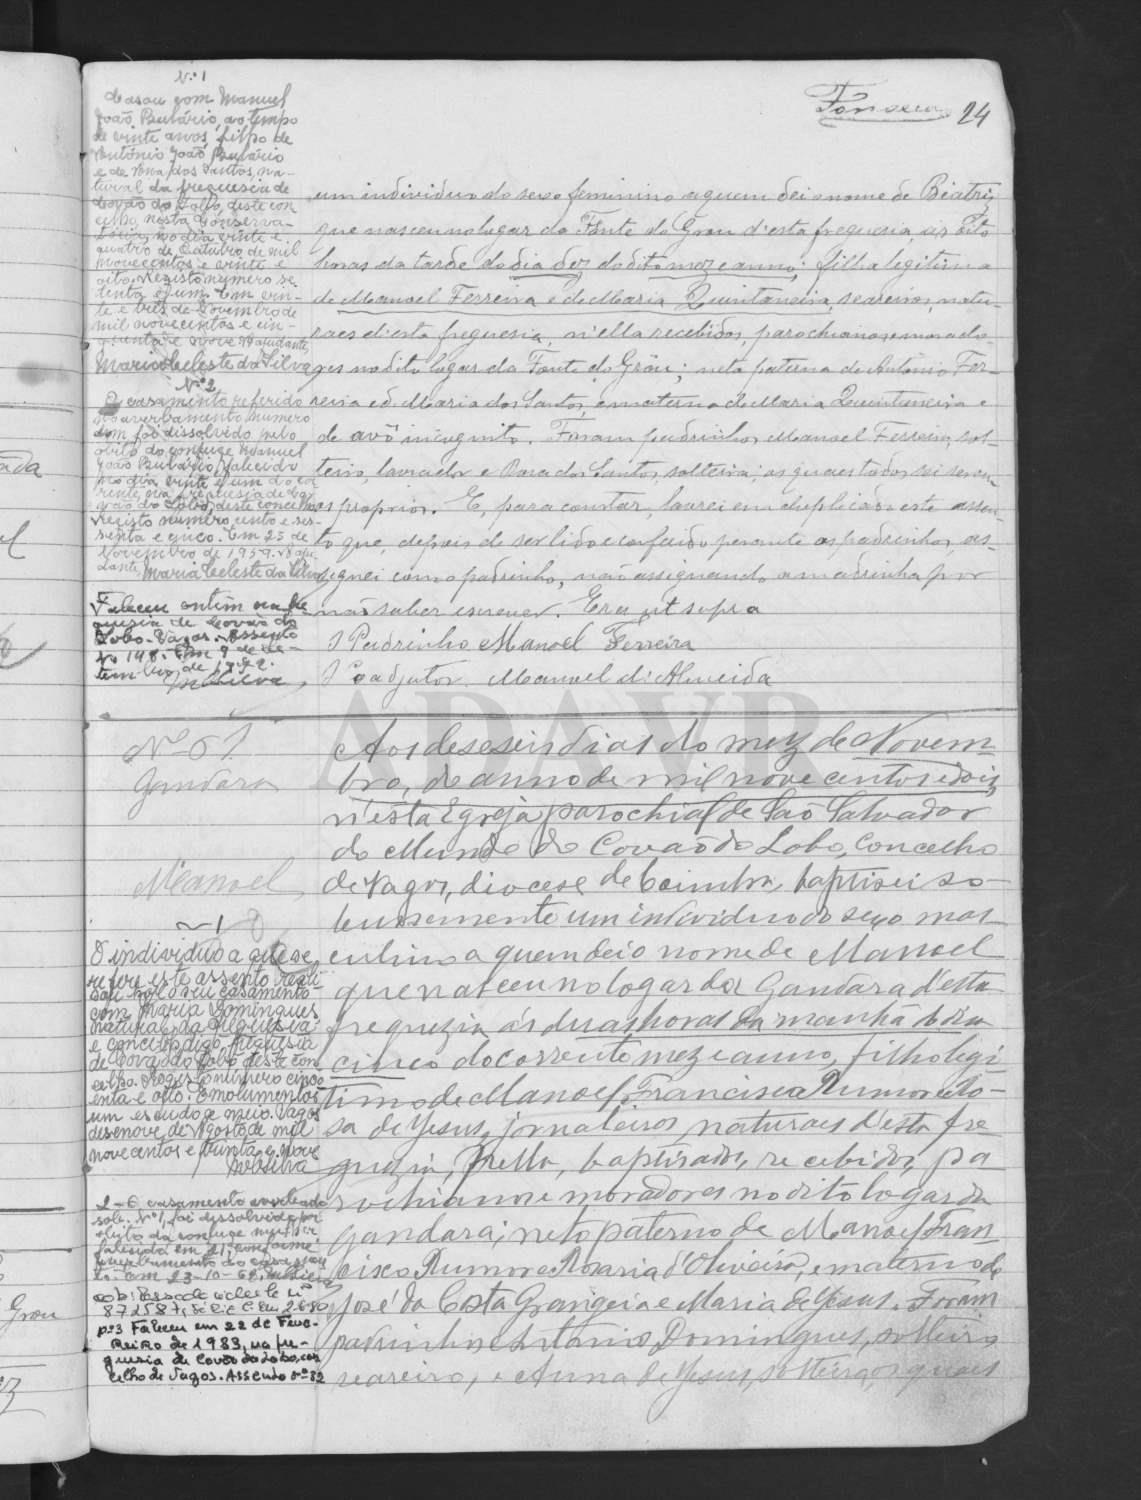 Fonseca 24
Nº 1
Casou com Manuel
João Bulário, ao tempo
de vinte anos, filho de
António João Bulário
e de Rosa dos Santos, na-
tural da freguesia de
Covão do Lobo, deste con-
celho, nesta Conserva-
toria, no dia vinte e
quatro de Outubro de mil
novecentos e vinte e
oito. Registo número se-
tenta e um. Em vin-
te e três de Novembro de
mil novecentos e cin-
quenta e nove. O Ajudante,
Maria Celeste da Silva
Nº 2
O casamento referido
no averbamento número
um foi dissolvido pelo
óbito do conjuge Manuel
João Bulário, falecido
no dia vinte e um do cor
rente, na freguesia de Co-
vão do Lobo, deste concelho
Registo número cento e ses-
senta e cinco. Em 23 de
Novembro de 1959. O aju-
dante, Maria Celeste da Silva
Faleceu ontem na fre
guesia de Covão do
Lobo. Vagos. Assento
nº 148. Em 9 de Se-
tembro de
MSilva
um individuo do sexo feminino a quem dei o nome de Beatriz
que nasceu no logar da Fonte do Grou d'esta freguezia, as oito
horas da tarde do dia dez do dito mez e anno; filha legitima
de Manoel Ferreira e de Maria Quintaneira, seareiros, natu-
raes d'esta freguesia, n'ella recebidos, parochianos e morado-
res no dito logar da Fonte do Grou; neta paterna de Antonio Fer-
reira e de Maria dos Santos, e materna de Maria Quintaneira e
de avô incognito. Foram padrinhos Manoel Ferreira, sol-
teiro, lavrador e Rosa dos Santos, solteira; os quaes todos sei serem
os proprios. E, para constar, lavrei em duplicado este assen-
to que, depois de ser lido e conferido perante os padrinhos, as-
signei com o padrinho, não assignando a madrinha por
não saber escrever. Era ut supra
O Padrinho Manoel Ferreira
O Coadjutor. Manuel d'Almeida
Nº 61
Gandara
Manoel
1
O individuo a que se
refere este assento reali
sou hoje o seu casamento
com Maria Domingues
natural da freguesia
e concelho digo, freguesia
de Covão do Lobo deste con
celho. Registo número cinco
enta e oito. Emolumentos
um escudo e meio. Vagos
desenove de Agosto de mil
novecentos e trinta e nove
2 - O casamento averbado
sob Nº 1, foi dissolvido por
óbito da conjuge mulher
falecida em 21, conforme
averbamento do casamen
to. Em 23-10-69.
pº 3 Faleceu em 22 de Feve-
reiro de 1983, na fre-
guesia de Covão do Lobo, con
celho de Vagos. Assento nº 32
Aos deseseis dias do mez de Novem-
bro, do anno de mil nove centos e dois,
n'esta Egreja parochial de São Salvador
do Mundo do Covão do Lobo, concelho
de Vagos, diocese de Coimbra, baptisei so-
lemnemente um individuo do sexo mas
culino a quem dei o nome de Manoel
que nasceu no logar da Gandara d'esta
freguezia ás duas horas da manhã do dia
cinco do corrente mez e anno, filho legi
timo de Manoel Francisco Rumor e Ro-
sa de Jesus, jornaleiros, naturaes d'esta fre
guezia, n'ella, baptisados, recebidos, pa
rochianos e moradores no dito logar da
Gandara; neto paterno de Manoel Fran
cisco Rumor e Rosaria d'Oliveira, e materno de
José da Costa Grangeia e Maria de Jesus. Foram
padrinhos Antonio Domingues, solteiro,
seareiro, e Anna de Jesus, solteira, os quaes
ADAVR